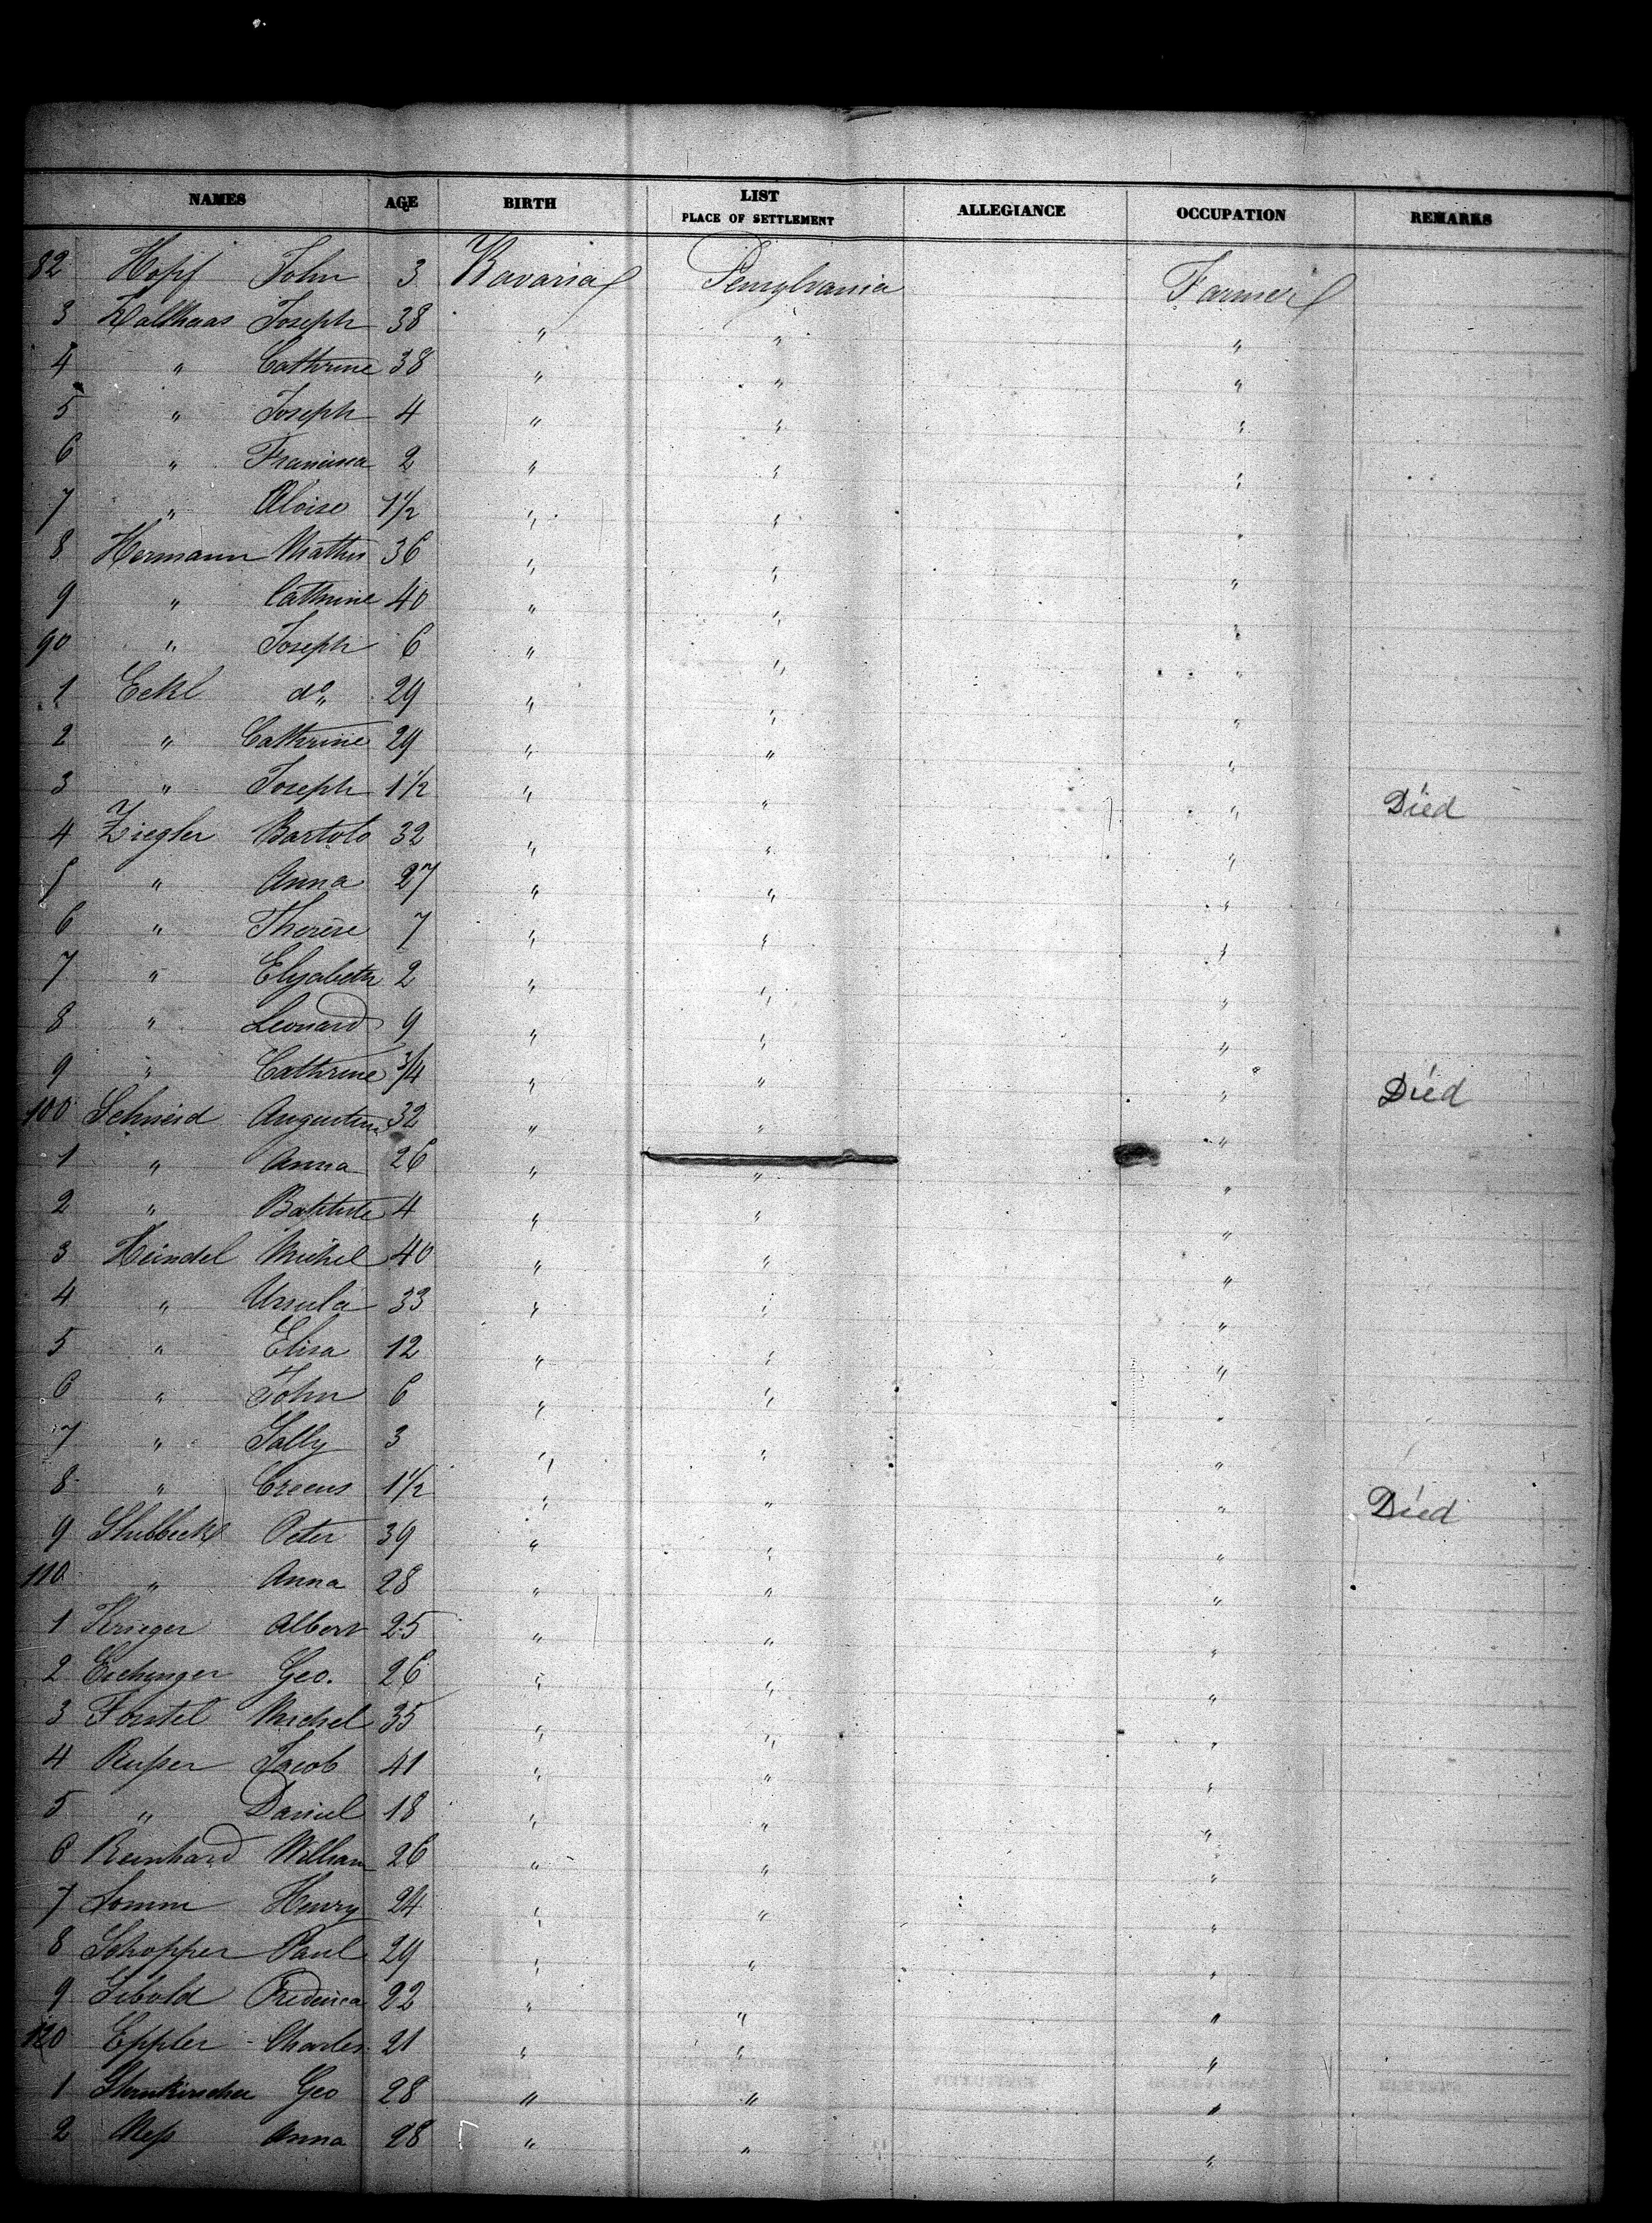 NAMES AGE BIRTH LIST PLACE OF SETTLEMENT ALLEGIANCE OCCUPATION REMARKS
82 Hopf John 3 Bavaria Pensylvania Farmer
3 Kalthaas Joseph 38 " " "
4 " Cathrine 38 " " "
5 " Joseph 4 " " "
6 " Francisca 2 " " "
7 " Aloise 1 1/2 " " "
8 Hermann Mathis 36 " " "
9 " Cathrine 40 " " "
90 " Joseph 6 " " "
1 Eckl do " 29 " " "
2 " Cathrine 29 " " "
3 " Joseph 1 1/2 " " " Died
4 Ziegler Bartolo 32 " " "
5 " Anna 27 " " "
6 " Therese 7 " " "
7 " Elysabeth 2 " " "
8 " Leonard 9 " " "
9 " Cathrine 3/4 " " " Died
100 Schneid Augustin 32 " " "
1 " Anna 26 " " "
2 " Baptiste 4 " " "
3 Heindel Michel 40 " " "
4 " Ursula 33 " " "
5 " Elisa 12 " " "
6 " John 6 " " "
7 " Sally 3 " " "
8 " Crecens 1 1/2 " " " Died
9 Peter 39 " " "
110 " Anna 28 " " "
1 Krieger Albert 25 " " "
2 Eichinger Geo. 26 " " "
3 Forstel Michel 35 " " "
4 Jacob 41 " " "
5 " Daniel 18 " " "
6 Reinhard William 26 " " "
7 Somm Henry 24 " " "
8 Schopper Paul 29 " " "
9 Sebold Frederica 22 " " "
120 Eppler Charles 21 " " "
1 Geo 28 " " "
2 Anna 28 " " "